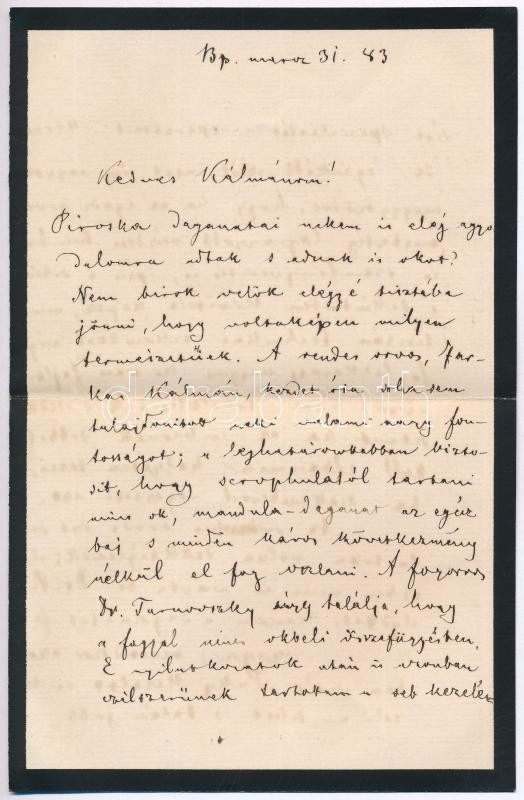 Bp. marcz 31. 83
Kedves Kálmánom!
Piroska daganatai nekem is elég aggo
dalomra adtak s adnak is okot?
Nem birok velök eléggé tisztába
jönni, hogy voltaképen milyen
természetűek. A rendes orvos, Far-
kas Kálmán, kezdet óta soha sem
tulajdonitott neki valami nagy fon-
tosságot; a leghatározottabban bizto-
sit, hogy scrophulától tartani
nincs ok, mandula-daganat az egész
baj s minden káros következmény
nélkül el fog oszlani. A fogorvos
Dr. Tarnovszky úgy találja, hogy
a foggal nincs okbeli összefüggésben.
E nyilatkozatok után is azonban
czélszerűnek tartottam a seb kezelés
darabanth